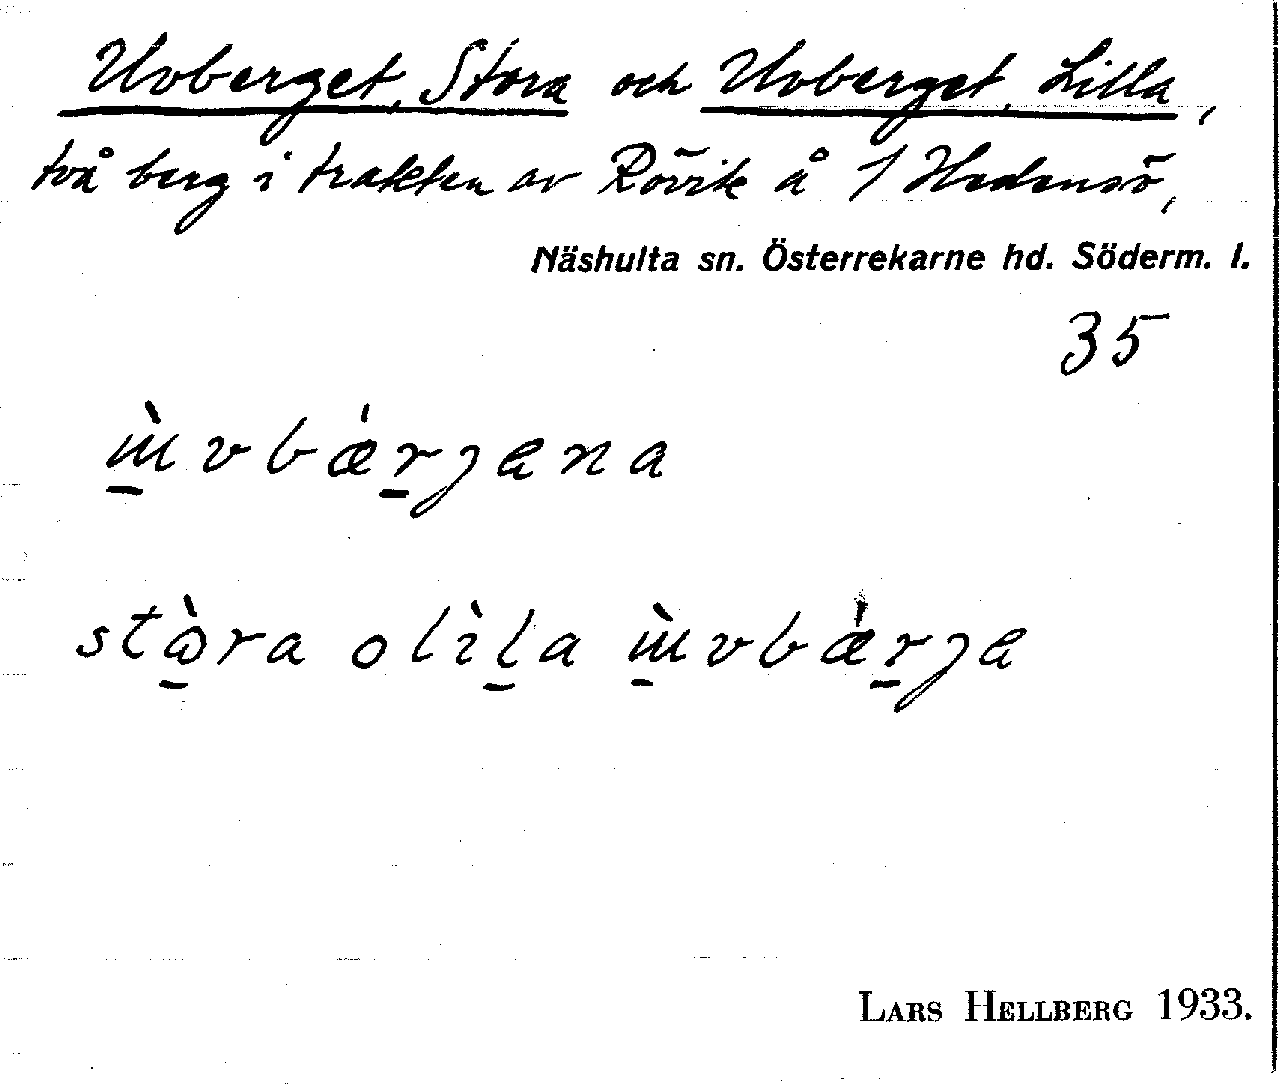 Uvberget, Stora och Uvberget, Lilla,
två berg i trakten av Rövik å / Hedensö,
Näshulta sn. Österrekarne hd. Söderm. l.
35
ɯ̲̀vbæ̀r̲jəna
stɷ̲̀ra olìl̲a ɯ̲̀vbæ̀r̲jə
LARS HELLBERG 1933.